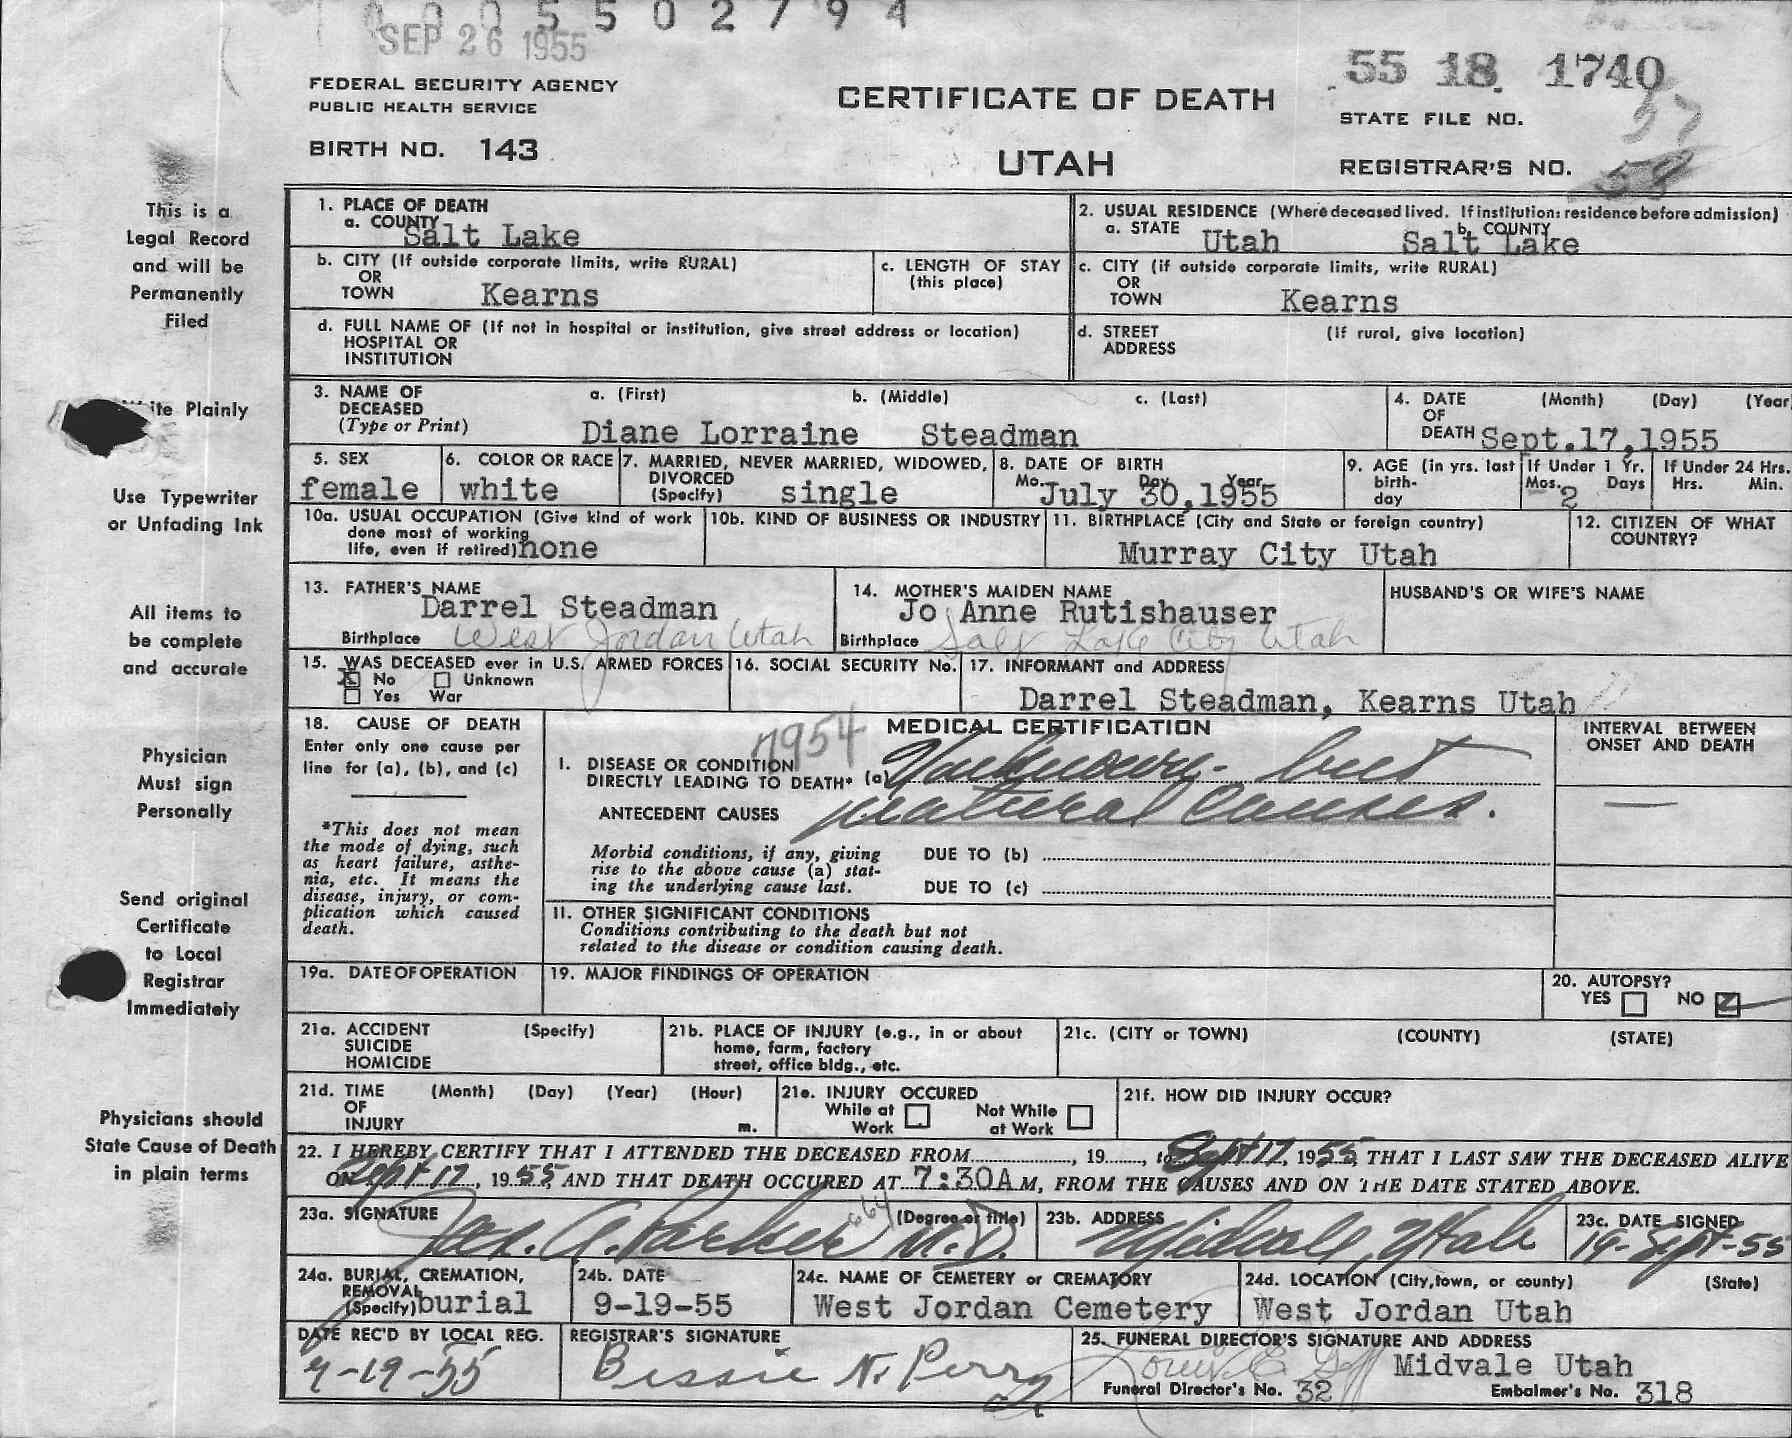 0 0 0 5 5 0 2 7 9 4
SEP 26 1955
55 18 1740
FEDERAL SECURITY AGENCY
PUBLIC HEALTH SERVICE
BIRTH NO. 143
CERTIFICATE OF DEATH
UTAH
STATE FILE NO.
57
REGISTRAR'S NO. 58
This is a
Legal Record
and will be
Permanently
Filed
Write Plainly
Use Typewriter
or Unfading Ink
All items to
be complete
and accurate
Physician
Must sign
Personally
Send original
Certificate
to Local
Registrar
Immediately
Physicians should
State Cause of Death
in plain terms
1. PLACE OF DEATH
a. COUNTY Salt Lake
2. USUAL RESIDENCE (Where deceased lived. If institution: residence before admission)
a. STATE Utah b. COUNTY Salt Lake
b. CITY (If outside corporate limits, write RURAL)
OR
TOWN Kearns
c. LENGTH OF STAY
(this place)
c. CITY (if outside corporate limits, write RURAL)
OR
TOWN Kearns
d. FULL NAME OF (If not in hospital or institution, give street address or location)
HOSPITAL OR
INSTITUTION
d. STREET (If rural, give location)
ADDRESS
3. NAME OF a. (First) b. (Middle) c. (Last)
DECEASED
(Type or Print) Diane Lorraine Steadman
4. DATE (Month) (Day) (Year
OF
DEATH Sept.17,1955
5. SEX
female
6. COLOR OR RACE
white
7. MARRIED, NEVER MARRIED, WIDOWED,
DIVORCED
(Specify) single
8. DATE OF BIRTH
Mo. Day Year
July 30,1955
9. AGE (in yrs. last
birth-
day
If Under 1 Yr.
Mos. 2 Days
If Under 24 Hrs.
Hrs. Min.
10a. USUAL OCCUPATION (Give kind of work
done most of working
life, even if retired) none
10b. KIND OF BUSINESS OR INDUSTRY
11. BIRTHPLACE (City and State or foreign country)
Murray City Utah
12. CITIZEN OF WHAT
COUNTRY?
13. FATHER'S NAME
Darrel Steadman
Birthplace West Jordan Utah
14. MOTHER'S MAIDEN NAME
Jo Anne Rutishauser
Birthplace Salt Lake City Utah
HUSBAND'S OR WIFE'S NAME
15. WAS DECEASED ever in U.S. ARMED FORCES
X No Unknown
Yes War
16. SOCIAL SECURITY No.
17. INFORMANT and ADDRESS
Darrel Steadman, Kearns Utah
18. CAUSE OF DEATH
Enter only one cause per
line for (a), (b), and (c)
*This does not mean
the mode of dying, such
as heart failure, asthe-
nia, etc. It means the
disease, injury, or com-
plication which caused
death.
7954
MEDICAL CERTIFICATION
I. DISEASE OR CONDITION
DIRECTLY LEADING TO DEATH* (a) Unknown - but
ANTECEDENT CAUSES natural causes.
Morbid conditions, if any, giving
rise to the above cause (a) stat-
ing the underlying cause last.
DUE TO (b)
DUE TO (c)
II. OTHER SIGNIFICANT CONDITIONS
Conditions contributing to the death but not
related to the disease or condition causing death.
INTERVAL BETWEEN
ONSET AND DEATH
—
19a. DATE OF OPERATION
19. MAJOR FINDINGS OF OPERATION
20. AUTOPSY?
YES NO
21a. ACCIDENT (Specify)
SUICIDE
HOMICIDE
21b. PLACE OF INJURY (e.g., in or about
home, farm, factory
street, office bldg., etc.
21c. (CITY or TOWN) (COUNTY) (STATE)
21d. TIME (Month) (Day) (Year) (Hour)
OF
INJURY m.
21e. INJURY OCCURED
While at Work Not While at Work
21f. HOW DID INJURY OCCUR?
22. I HEREBY CERTIFY THAT I ATTENDED THE DECEASED FROM , 19 , to Sept 17, 1955, THAT I LAST SAW THE DECEASED ALIVE
ON Sept 17, 1955, AND THAT DEATH OCCURED AT 7:30A M, FROM THE CAUSES AND ON THE DATE STATED ABOVE.
23a. SIGNATURE (Degree or title)
Jas. A. Parker M.D.
664
23b. ADDRESS
Midvale, Utah
23c. DATE SIGNED
19-Sept-55
24a. BURIAL, CREMATION,
REMOVAL
(Specify) burial
24b. DATE
9-19-55
24c. NAME OF CEMETERY or CREMATORY
West Jordan Cemetery
24d. LOCATION (City, town, or county) (State)
West Jordan Utah
DATE REC'D BY LOCAL REG.
9-19-55
REGISTRAR'S SIGNATURE
Bessie N. Perry
25. FUNERAL DIRECTOR'S SIGNATURE AND ADDRESS
Midvale Utah
Funeral Director's No. 32 Embalmer's No. 318